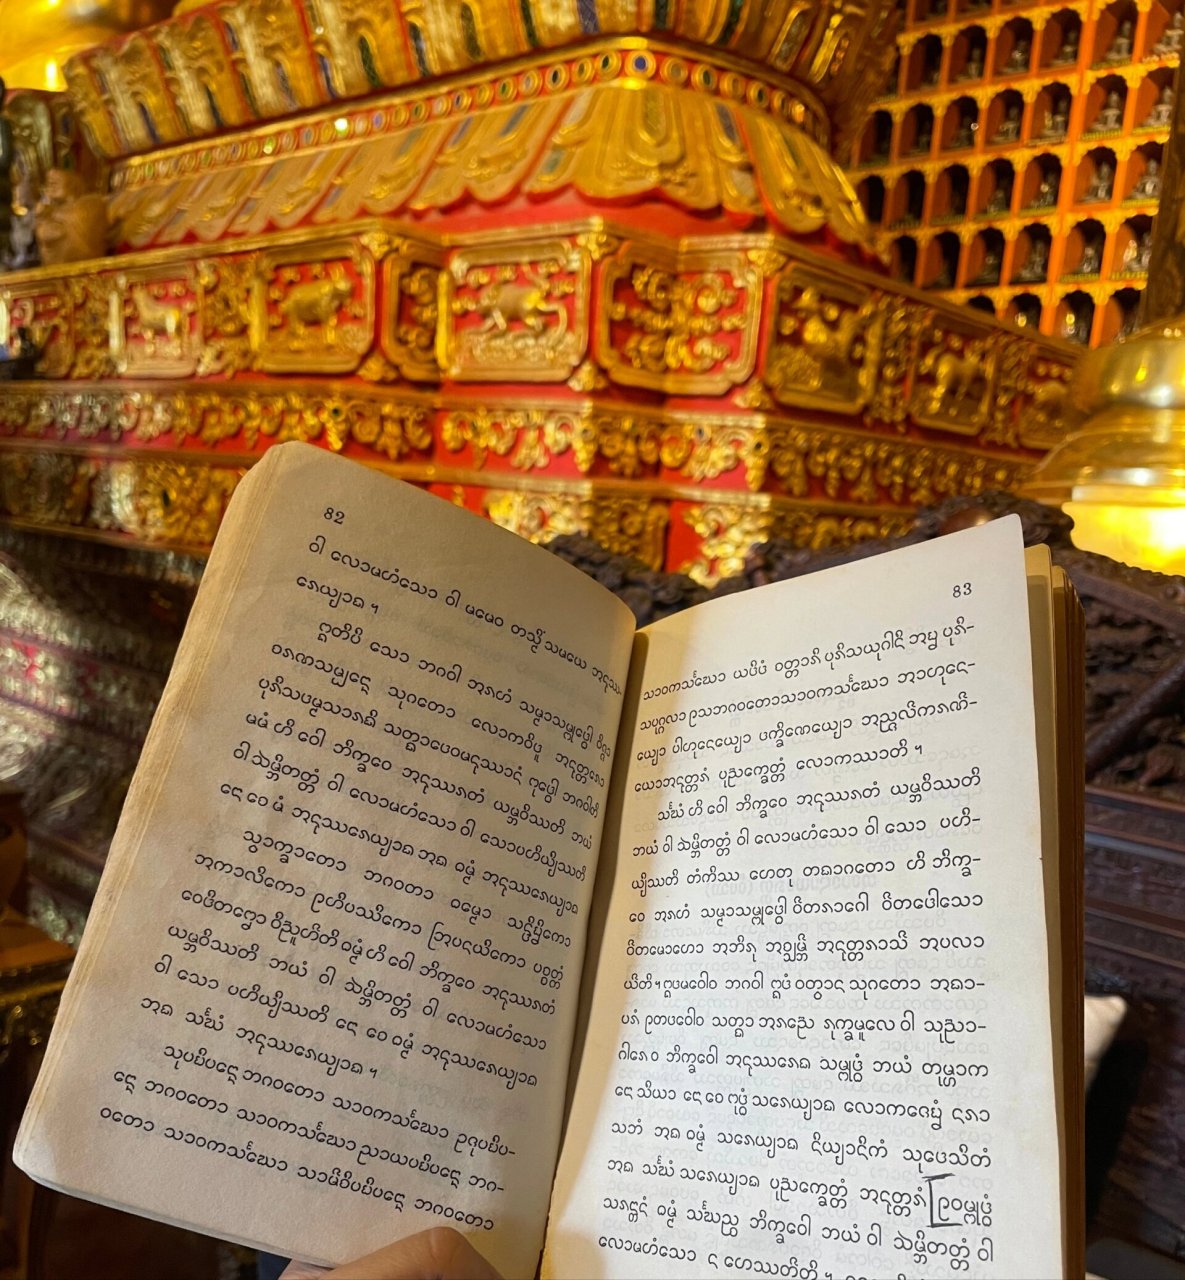 82
ဝါ လောမဟံသော ဝါ မမေဝ တသ္မိံ သမယေ အနုဿ-
ရေယျာထ ။
ဣတိပိ သော ဘဂဝါ အရဟံ သမ္မာသမ္ဗုဒ္ဓေါ ဝိဇ္ဇာ
စရဏသမ္ပန္နော သုဂတော လောကဝိဒူ အနုတ္တရော
ပုရိသဒမ္မသာရထိ သတ္ထာဒေဝမနုဿာနံ ဗုဒ္ဓေါ ဘဂဝါတိ
မမံ ဟိ ဝေါ ဘိက္ခဝေ အနုဿရတံ ယမ္ဘဝိဿတိ ဘယံ
ဝါ ဆမ္ဘိတတ္တံ ဝါ လောမဟံသော ဝါ သောပဟိယျိဿတိ
နော စေ မံ အနုဿရေယျာထ အထ ဓမ္မံ အနုဿရေယျာထ
သွာက္ခာတော ဘဂဝတာ ဓမ္မော သန္ဒိဋ္ဌိကော
အကာလိကော ဧဟိပဿိကော ဩပနယိကော ပစ္စတ္တံ
ဝေဒိတဗ္ဗော ဝိညူဟိတိ ဓမ္မံ ဟိ ဝေါ ဘိက္ခဝေ အနုဿရတံ
ယမ္ဘဝိဿတိ ဘယံ ဝါ ဆမ္ဘိတတ္တံ ဝါ လောမဟံသော
ဝါ သော ပဟိယျိဿတိ နော စေ ဓမ္မံ အနုဿရေယျာထ
အထ သင်္ဃံ အနုဿရေယျာထ ။
သုပဋိပန္နော ဘဂဝတော သာဝကသင်္ဃော ဥဇုပဋိပ-
န္နော ဘဂဝတော သာဝကသင်္ဃော ညာယပဋိပန္နော ဘဂ-
ဝတော သာဝကသင်္ဃော သာမိစိပဋိပန္နော ဘဂဝတော
83
သာဝကသင်္ဃော ယဒိဒံ စတ္တာရိ ပုရိသယုဂါနိ အဋ္ဌ ပုရိ-
သပုဂ္ဂလာ ဧသဘဂဝတောသာဝကသင်္ဃော အာဟုနေ-
ယျော ပါဟုနေယျော ဒက္ခိဏေယျော အညလိကရဏိ-
ယောအနုတ္တရံ ပုညက္ခေတ္တံ လောကဿာတိ ။
သင်္ဃံ ဟိ ဝေါ ဘိက္ခဝေ အနုဿရတံ ယမ္ဘဝိဿတိ
ဘယံ ဝါ ဆမ္ဘိတတ္တံ ဝါ လောမဟံသော ဝါ သော ပဟိ-
ယျိဿတိ တံကိဿ ဟေတု တထာဂတော ဟိ ဘိက္ခ-
ဝေ အရဟံ သမ္မာသမ္ဗုဒ္ဓေါ ဝိတရာဂေါ ဝိတဒေါသော
ဝိတမောဟော အဘိရု အစ္ဆမ္ဘိ အနုတ္တရာသိ အပလာ
ယိတိ ။ ဣဒမဝေါစ ဘဂဝါ ဣဒံ ဝတွာန သုဂတော အထာ-
ပရံ ဧတဒဝေါစ သတ္ထာ အရညေ ရုက္ခမူလေ ဝါ သုညာ-
ဂါရေ ဝ ဘိက္ခဝေါ အနုဿရေထ သမ္ဗုဒ္ဓံ ဘယံ တုမှာက
နော သိယာ နော စေ ဗုဒ္ဓံ သရေယျာထ လောကဇေဋ္ဌံ နရာ
သဘံ အထ ဓမ္မံ သရေယျာထ နိယျာနိကံ သုဒေသိတံ
အထ သင်္ဃံ သရေယျာထ ပုညက္ခေတ္တံ အနုတ္တရံ ဧဝမ္ဗုဒ္ဓံ
သရန္တာနံ ဓမ္မံ သင်္ဃဉ္စ ဘိက္ခဝေါ ဘယံ ဝါ ဆမ္ဘိတတ္တံ ဝါ
လောမဟံသော န ဟေဿတိတိ ။